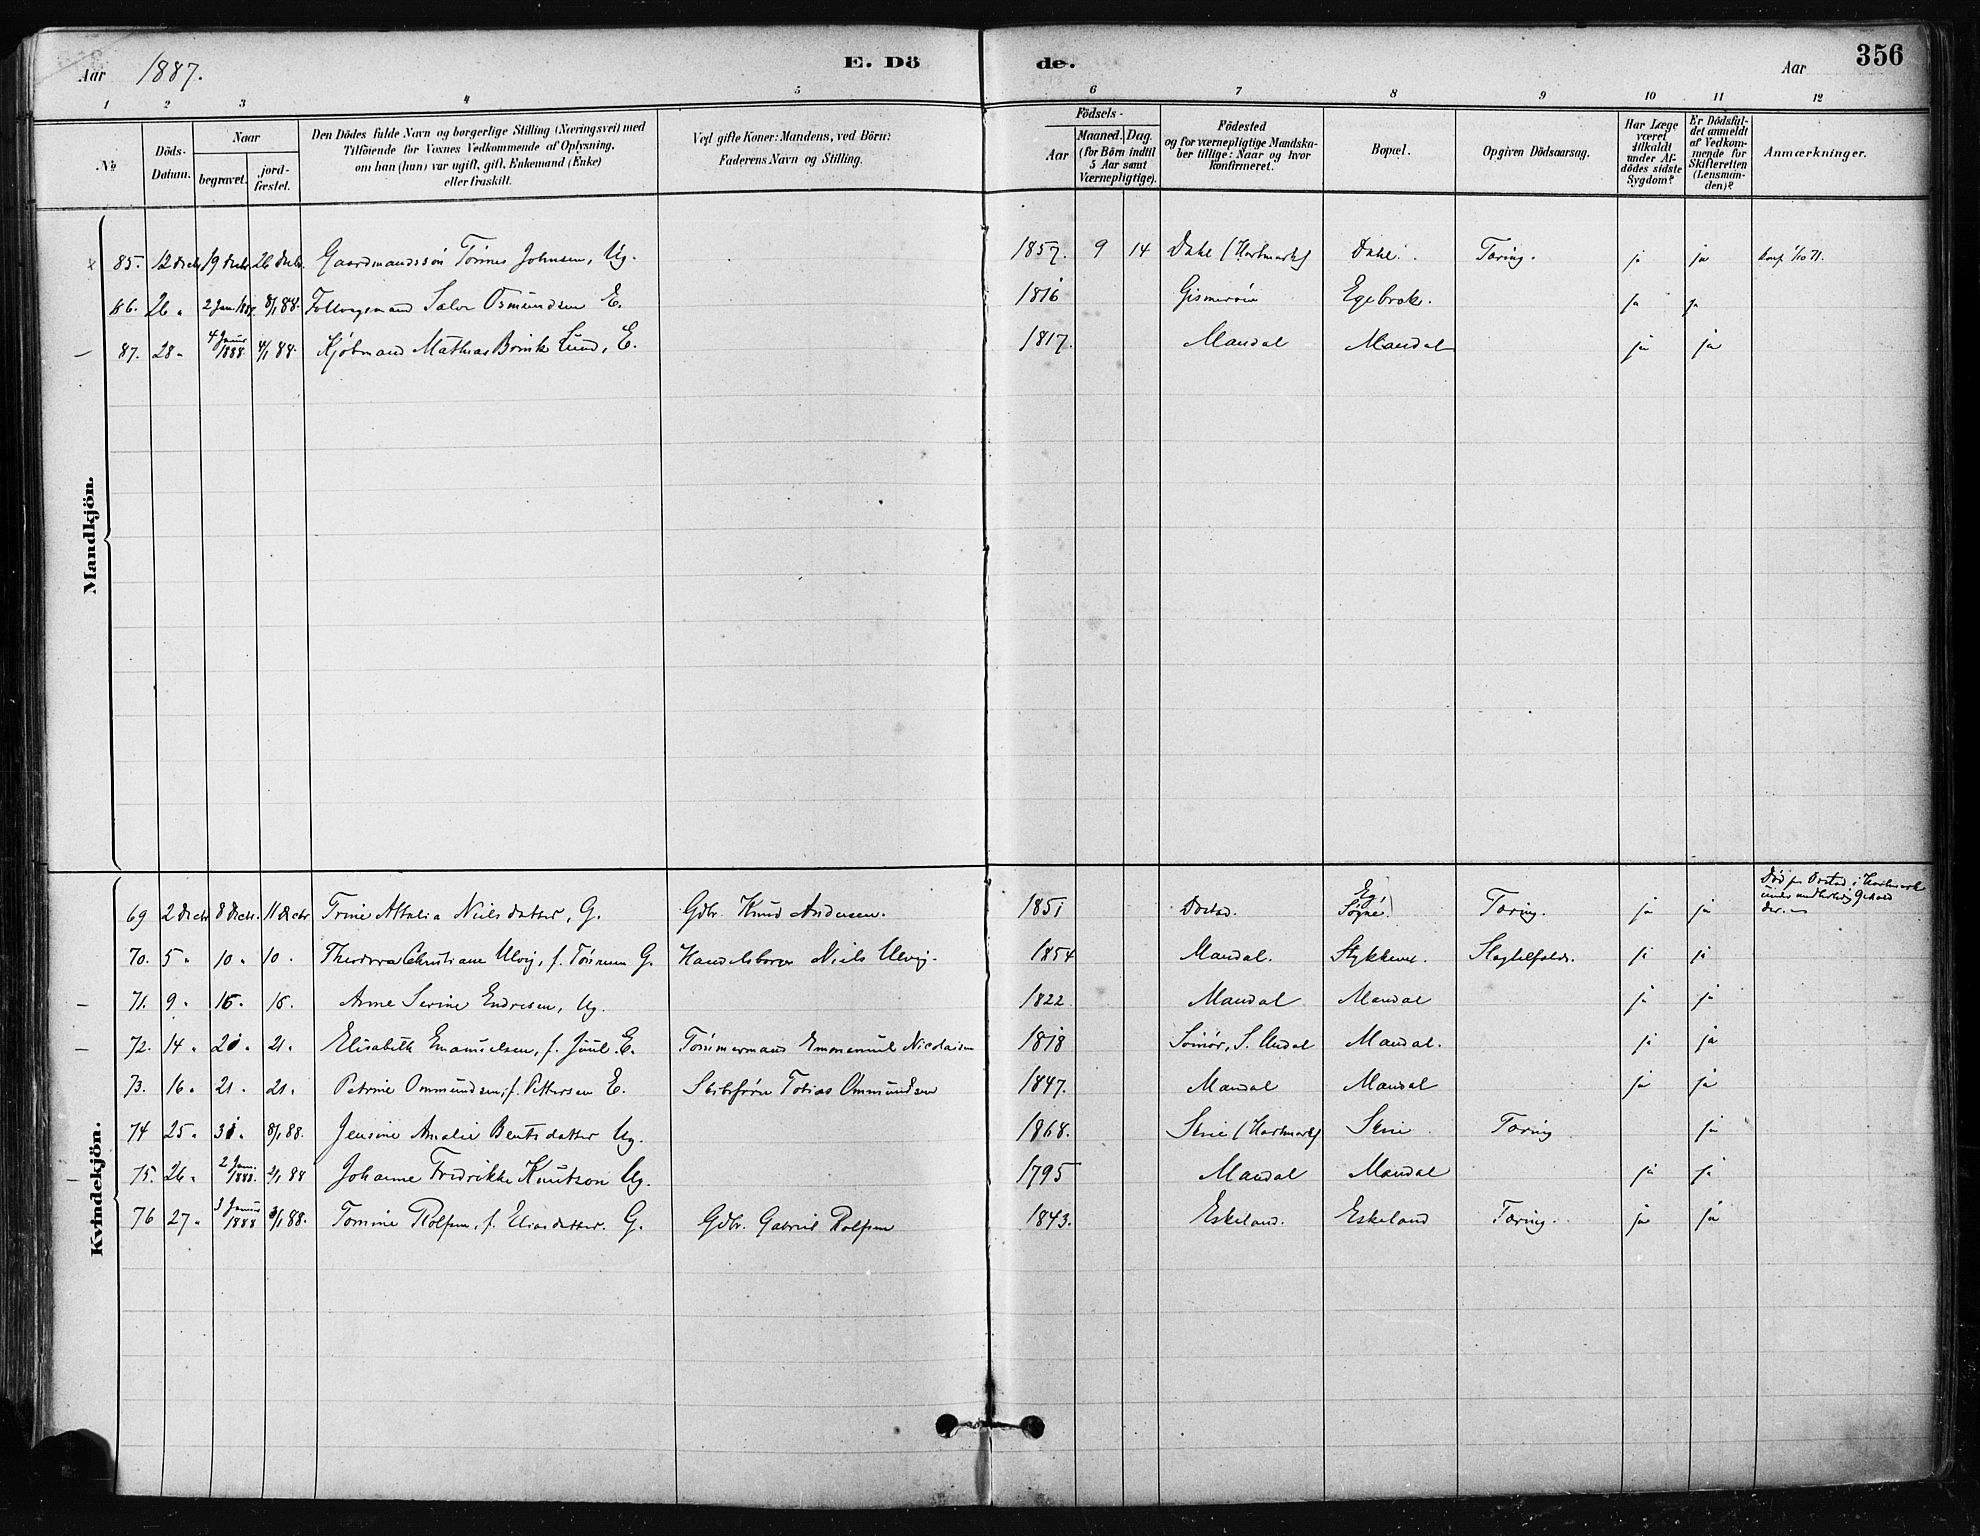 Aar 1887. E. Dö de. Aar 356
1 2 3 4 5 6 7 8 9 10 11 12
№ Döds-Datum. Naar begravet. jordfæstet. Den Dödes fulde Navn og borgerlige Stilling (Næringsvei) med Tilföiende for Voxnes Vedkommende af Oplysning, om han (hun) var ugift, gift, Enkemand (Enke) eller fraskilt. Ved gifte Koner: Mandens, ved Börn: Faderens Navn og Stilling. Födsels- Aar Maaned. Dag. (for Börn indtil 5 Aar samt Værnepligtige). Födested og for værnepligtige Mandskaber tillige: Naar og hvor konfirmeret. Bopæl. Opgiven Dödsaarsag. Har Læge været tilkaldt under Afdödes sidste Sygdom? Er Dödsfaldet anmeldt af Vedkommende for Skifteretten (Lensmanden)? Anmærkninger.
Mandkjön.
85. 12 Decbr 19 Decbr 26 Decbr. Gaardmandssön Tönnes Johnsen, Ug. 1857. 9 14 Dahl (Hartmark) Dahl. Tæring. ja ja
86. 26 " 2 Jan 1888 8/1 88. Salve Osmundsen E. 1816 Gismeröie Egebrok. ja ja
87. 28 " 4 Januar 1888. 4/1 88. Kjöbmand Mathias Brinck Lund, E. 1817. Mandal Mandal ja ja
Kvindekjön.
69 2 Decbr 8 Decbr. 11 Decbr Trine Attalia Nielsdatter, G. Gdbr. Knud Andersen. 1851 Eg Søgne. Tæring. ja ja
70. 5 " 10 " 10 " Theodora Christiane Ulvig, f. Tönnesen G. Handelsborger Niels Ulvig. 1854 Mandal. Slagtilfælde. ja ja
71. 9 " 15 " 15. Anne Serine Endresen, Ug. 1822 Mandal Mandal ja ja
72. 14 " 21 " 21 " Elisabeth Emanuelsen, f. Juul. E. Tömmermand Emanuel Nicolaisen 1818 S. Undal Mandal. ja ja
73. 16 " 21 " 21 " Petrine Ommundsen, f. Pettersen E. Tobias Ommundsen 1847. Mandal Mandal ja ja
74 25 " 31 " 8/1 88. Jensine Amalie Bentsdatter Ug. 1868. Skeie (Hartmark) Skeie Tæring ja
75. 26 " 2 Jan. 1888. 2/1 88 Johanne Fredrikke Knutson Ug. 1795 Mandal Mandal ja ja
76 27 " 3 Januar 1888 3/1 88. Tomine Rolfsen, f. Eliasdatter. G. Gdbr. Gabriel Rolfsen 1843. Eskeland. Eskeland Tæring. ja ja